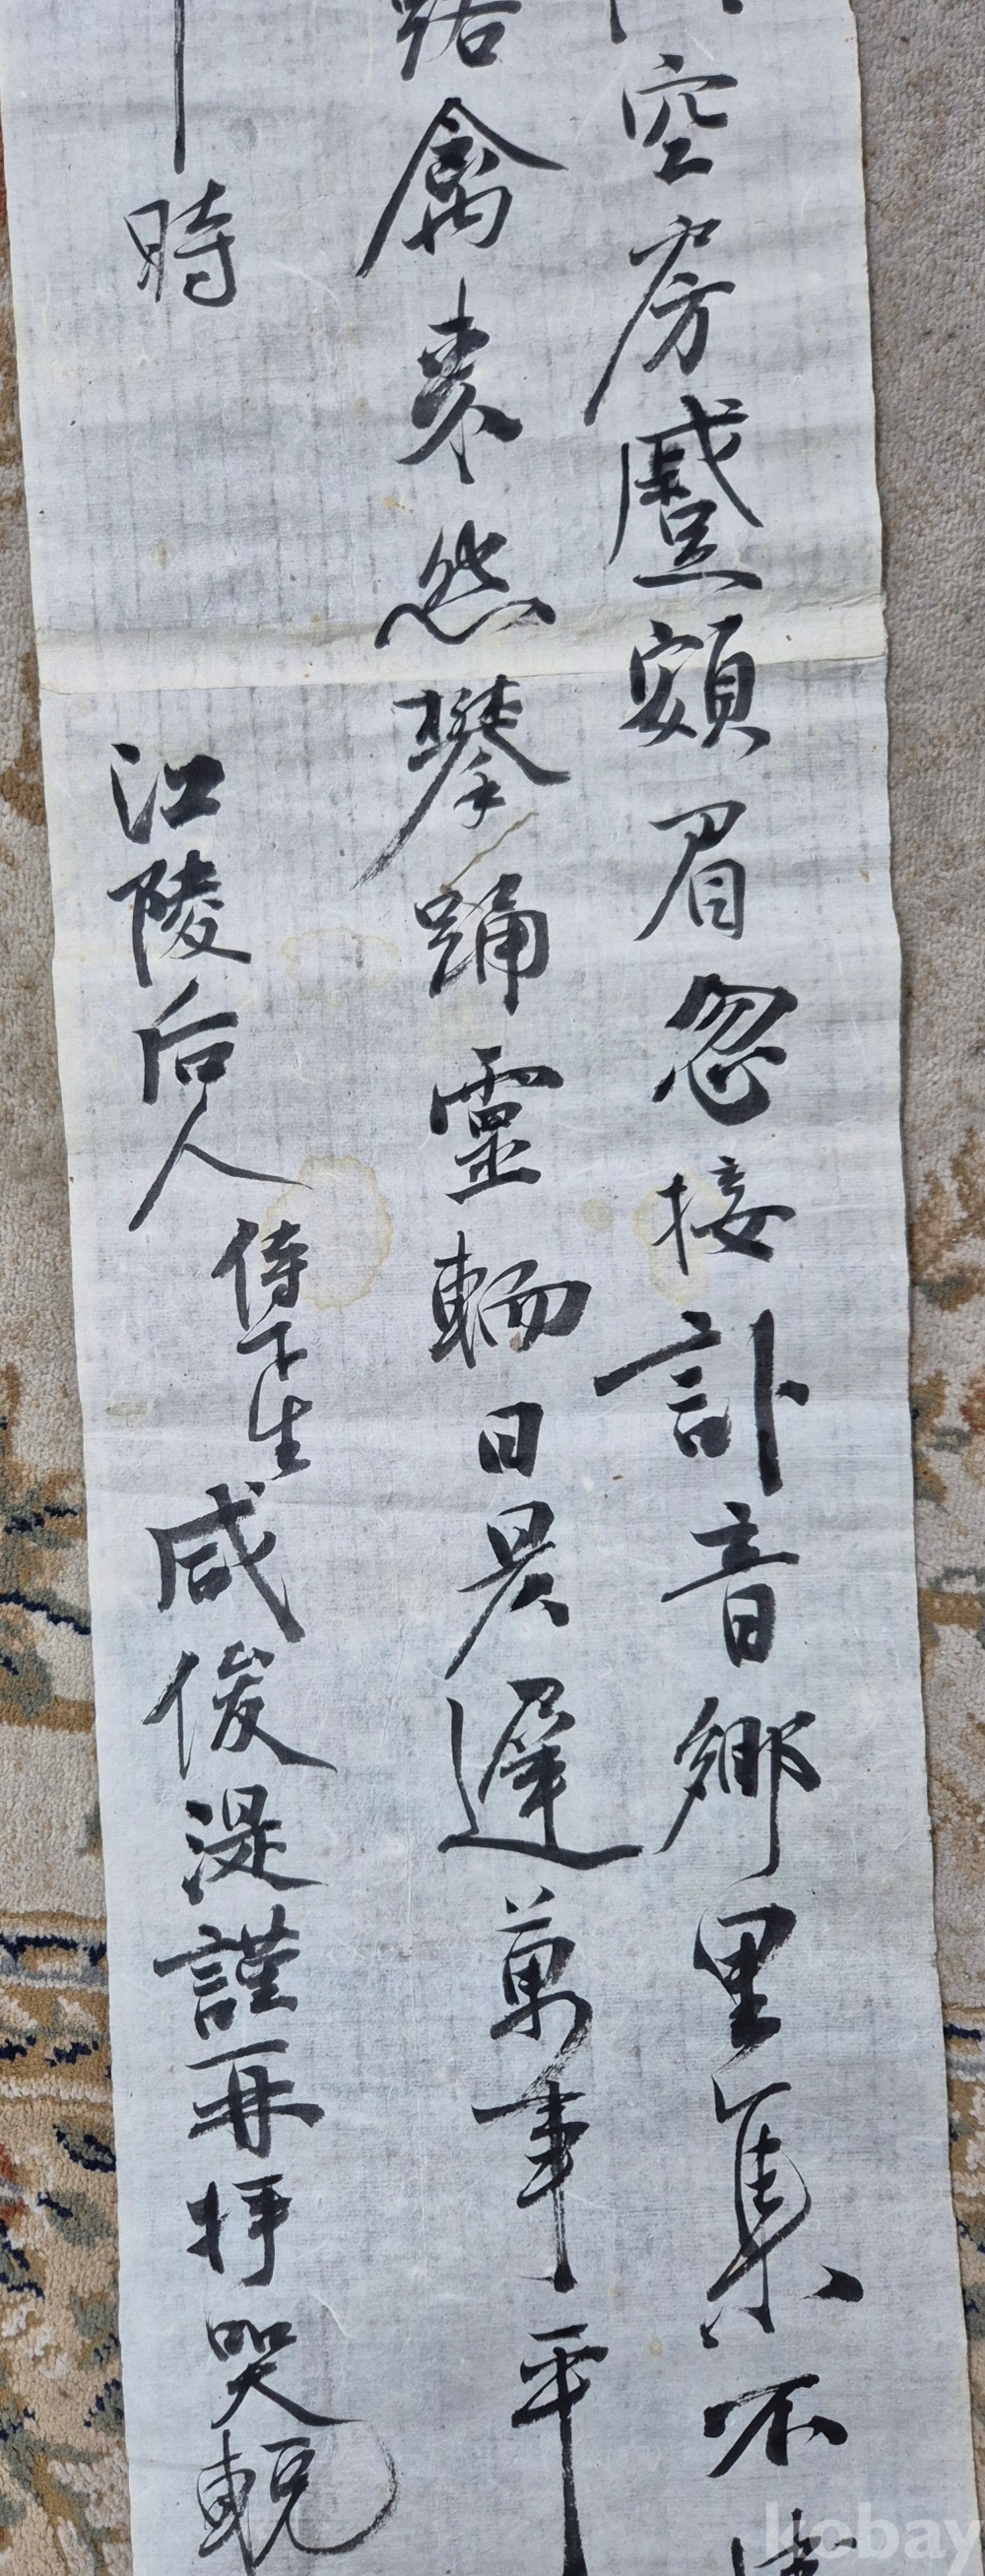 空房蹙額眉忽接訃音鄉里集不
禽来然攀踊靈輀日晷遲萬事平
時
江陵后人侍下生咸俊湜謹再拜哭輓
kobay